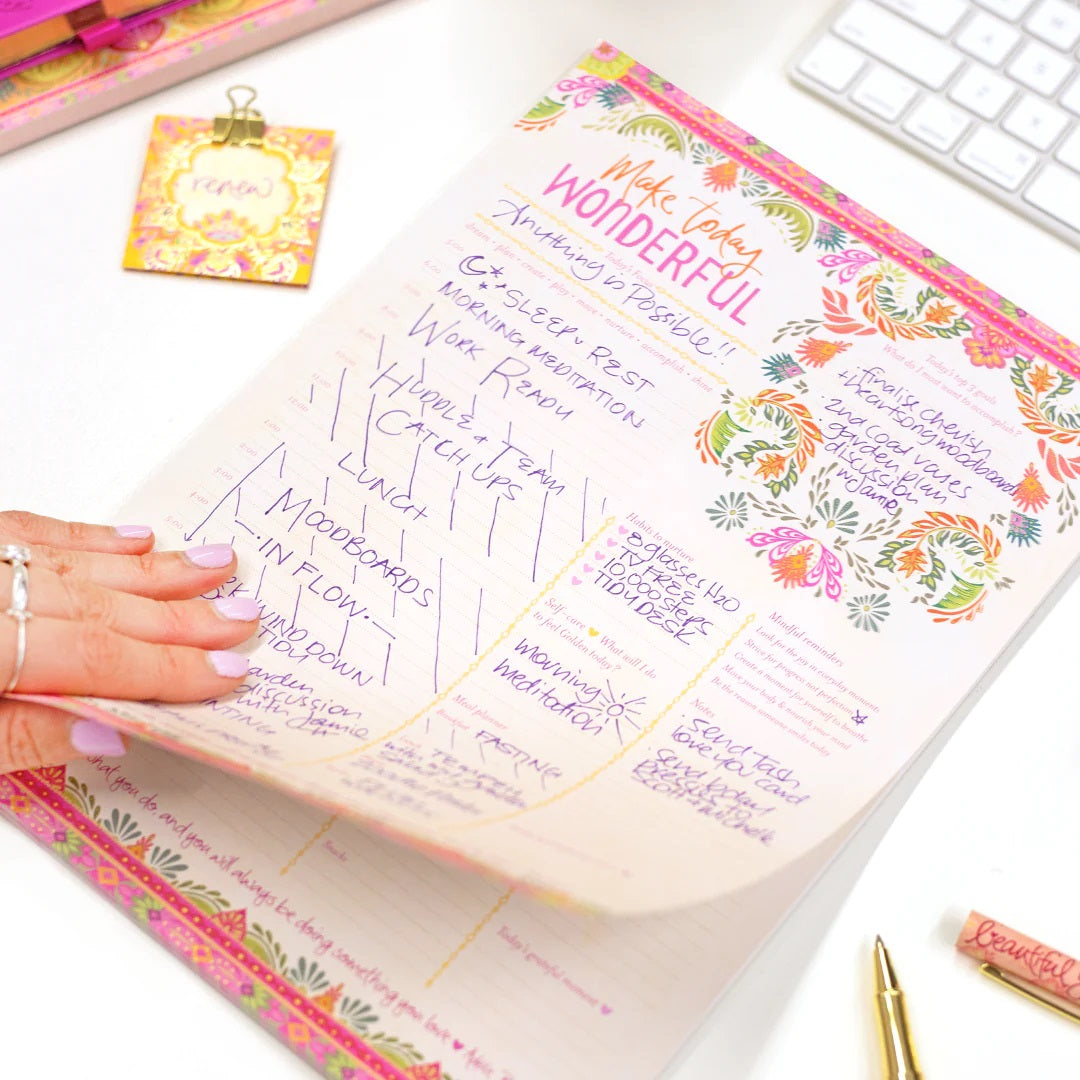 renew
Make today
WONDERFUL
Today's Focus
Anything is Possible!!
dream • plan • create • play • move • nurture • accomplish • shine
5:00
6:00
SLEEP & REST
MORNING MEDITATION
WORK READY
HUDDLE & TEAM
CATCH UPS
LUNCH
MOODBOARDS
IN FLOW.
WIND DOWN
TIDY
garden
discussion
with Jamie
10:00
11:00
12:00
1:00
2:00
3:00
4:00
5:00
Today's top 3 goals
What do I most want to accomplish?
finalise cherish
+ heartsong moodboards
2nd coat vases
garden plan
discussion
w Jamie
Habits to nurture
8 glasses H2O
TV FREE
10,000 steps
TIDY DESK
Self-care What will I do
to feel Golden today?
mourning
meditation
Meal planner
Breakfast
FASTING
Mindful reminders
Look for the joy in everyday moments
Strive for progress not perfection
Create a moment for yourself to breathe
Move your body & nourish your mind
Be the reason someone smiles today
Notes
Send Tash
love you card
Send today
what you do, and you will always be doing something you love
Snacks
Today's grateful moment
beautiful